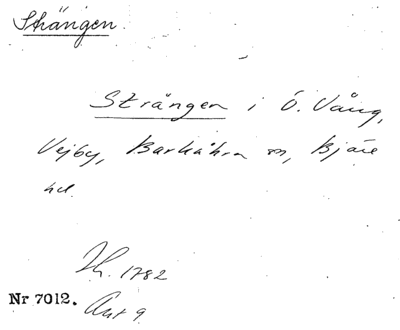 Strängen.
Strängen i Ö. Vång,
Vejby, Barkåkra sn, Bjäre
hd.
Th. 1782
Nr 7012.
Akt 9